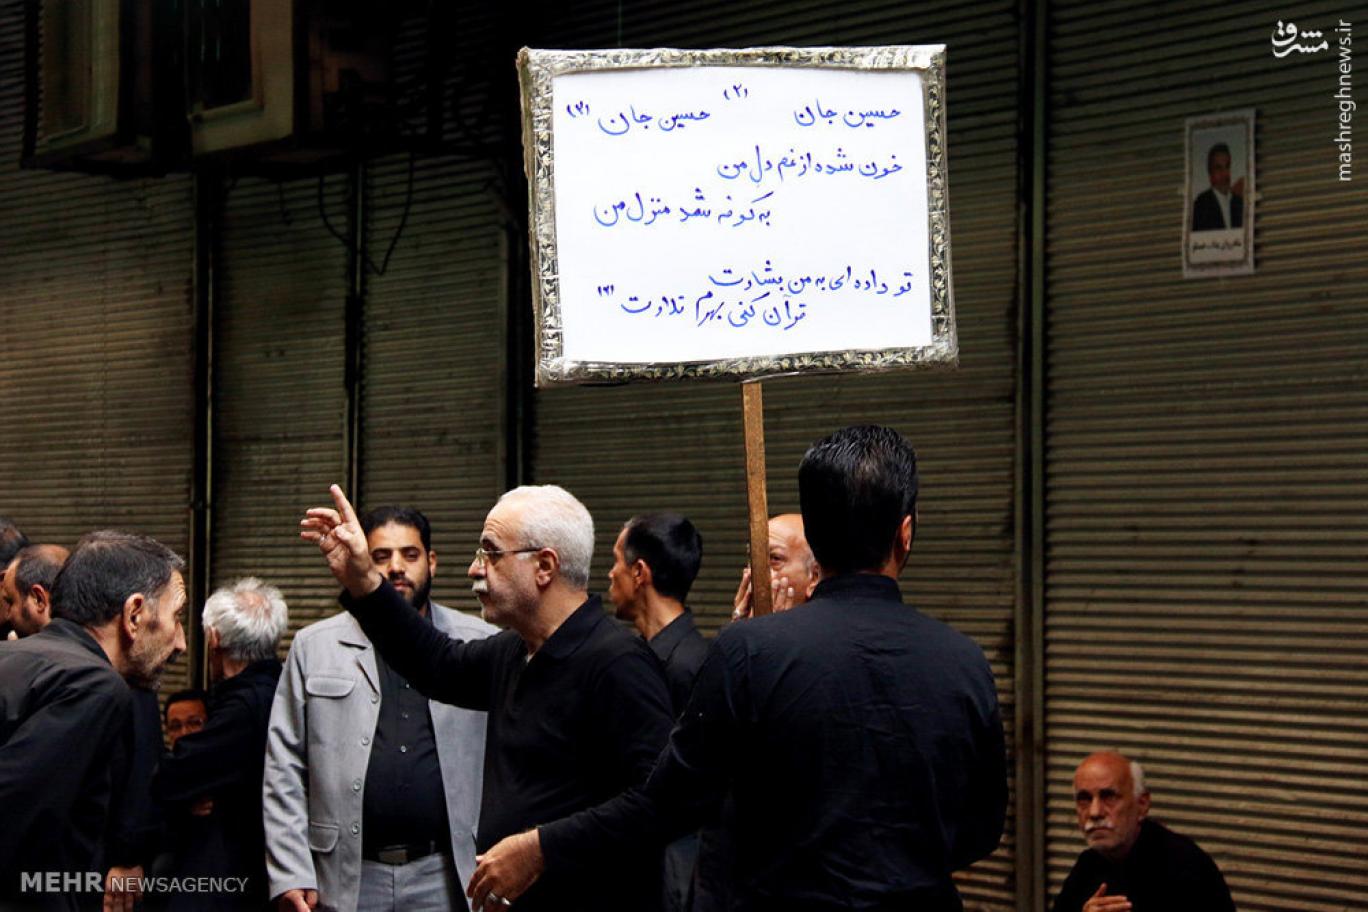 حسین جان (۲) حسین جان (۲)
خون شده از غم دل من
به کوفه شد منزل من
تو داده ای به من بشارت
قرآن کنی بهرم تلاوت (۲)
مشرق
mashreghnews.ir
MEHR NEWSAGENCY